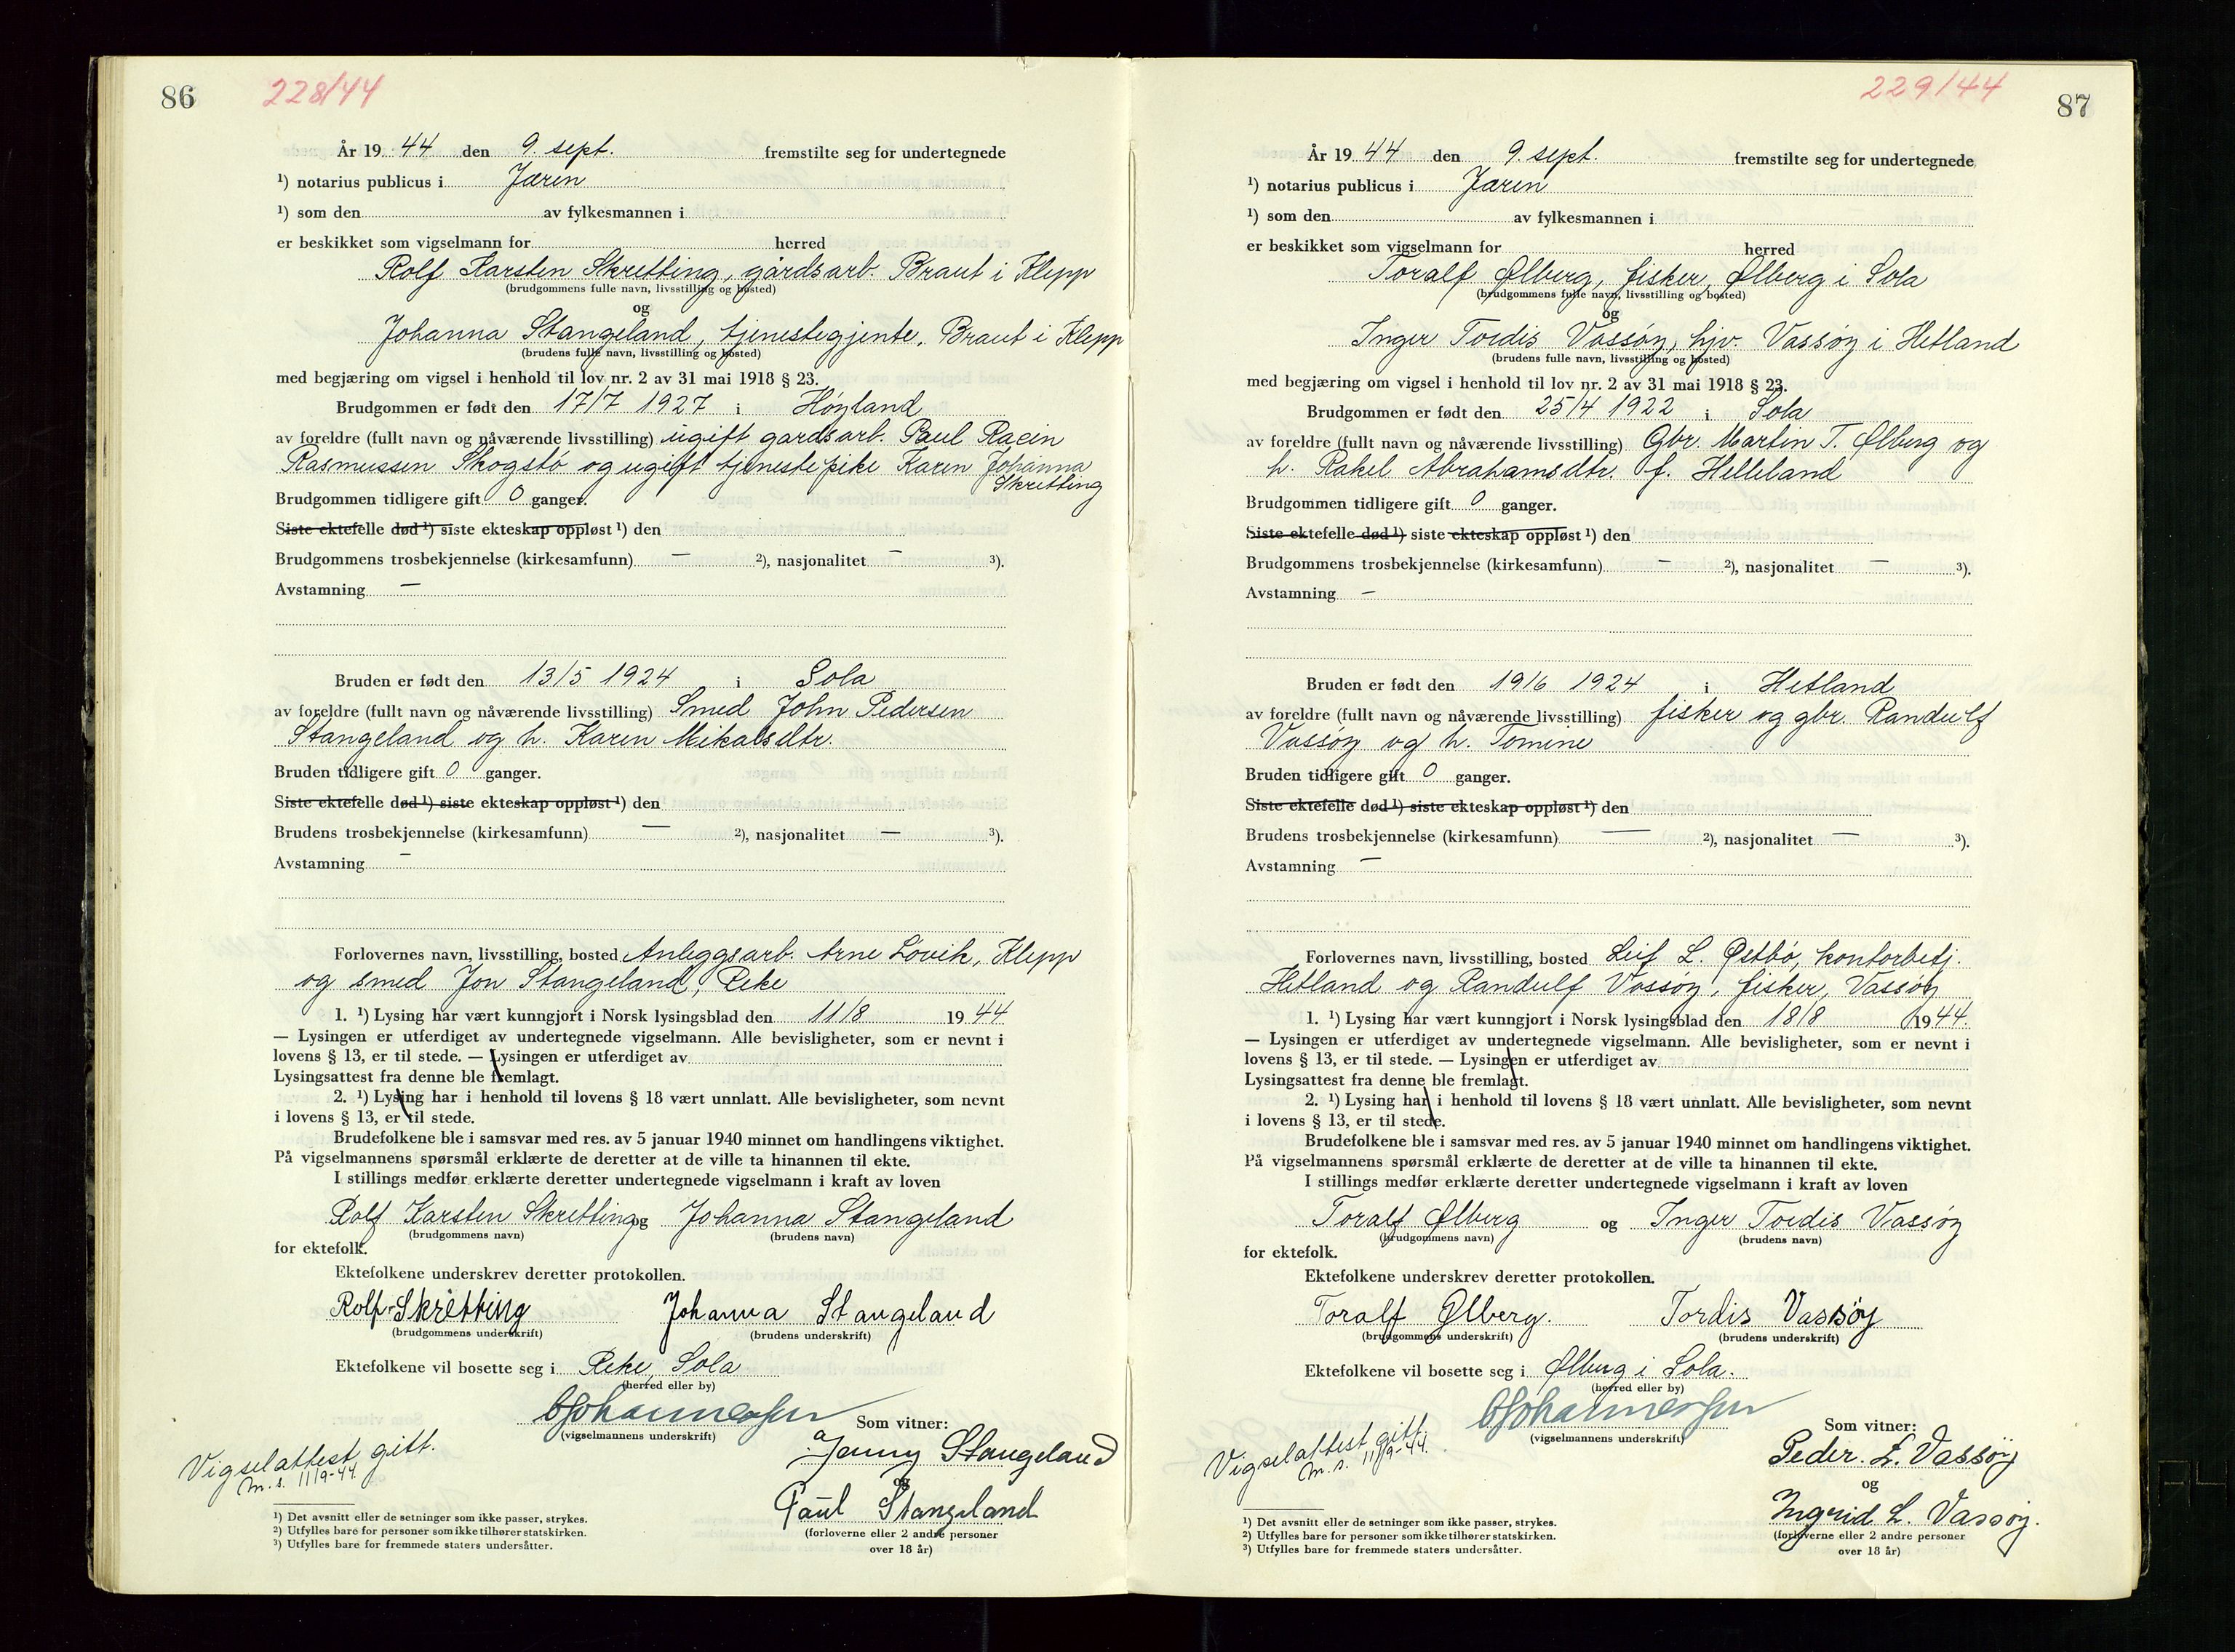 86
228/44
År 19 44 den 9. sept. fremstilte seg for undertegnede
¹) notarius publicus i Jæren
¹) som den av fylkesmannen i
er beskikket som vigselmann for herred
Rolf Karsten Skretting, gårdsarb. Braut i Klepp
(brudgommens fulle navn, livsstilling og bosted)
og
Johanna Stangeland, tjenestegjente, Braut i Klepp
(brudens fulle navn, livsstilling og bosted)
med begjæring om vigsel i henhold til lov nr. 2 av 31 mai 1918 § 23.
Brudgommen er født den 17/7 1927 i Høyland
av foreldre (fullt navn og nåværende livsstilling) ugift gardsarb. Paul Racin
Rasmussen Skogstö og ugift tjenestepike Karen Johanna
Skretting
Brudgommen tidligere gift 0 ganger.
Siste ektefelle død ¹) siste ekteskap oppløst ¹) den
Brudgommens trosbekjennelse (kirkesamfunn) — ²), nasjonalitet — ³).
Avstamning —
Bruden er født den 13/5 1924 i Sola
av foreldre (fullt navn og nåværende livsstilling) Smed John Pedersen
Stangeland og h. Karen Mikalsdtr.
Bruden tidligere gift 0 ganger.
Siste ektefelle død ¹) siste ekteskap oppløst ¹) den
Brudens trosbekjennelse (kirkesamfunn) — ²), nasjonalitet — ³).
Avstamning —
Forlovernes navn, livsstilling, bosted Anleggsarb. Arne Lovik, Klepp
og smed Jon Stangeland, Reke
1. ¹) Lysing har vært kunngjort i Norsk lysingsblad den 11/8 19 44
— Lysingen er utferdiget av undertegnede vigselmann. Alle bevisligheter, som er nevnt i
lovens § 13, er til stede. — Lysingen er utferdiget av
Lysingsattest fra denne ble fremlagt.
2. ¹) Lysing har i henhold til lovens § 18 vært unnlatt. Alle bevisligheter, som nevnt
i lovens § 13, er til stede.
Brudefolkene ble i samsvar med res. av 5 januar 1940 minnet om handlingens viktighet.
På vigselmannens spørsmål erklærte de deretter at de ville ta hinannen til ekte.
I stillings medfør erklærte deretter undertegnede vigselmann i kraft av loven
Rolf Karsten Skretting og Johanna Stangeland
(brudgommens navn) (brudens navn)
for ektefolk.
Ektefolkene underskrev deretter protokollen.
Rolf Skretting Johanna Stangeland
(brudgommens underskrift) (brudens underskrift)
Ektefolkene vil bosette seg i Reke, Sola
(herred eller by)
(vigselmannens underskrift) Som vitner:
Vigselattest gitt.
m.s. 11/9-44.
Jenny Stangeland
og
Paul Stangeland
(forloverne eller 2 andre personer
over 18 år)
¹) Det avsnitt eller de setninger som ikke passer, strykes.
²) Utfylles bare for personer som ikke tilhører statskirken.
³) Utfylles bare for fremmede staters undersåtter.
87
229/44
År 19 44 den 9. sept. fremstilte seg for undertegnede
¹) notarius publicus i Jæren
¹) som den av fylkesmannen i
er beskikket som vigselmann for herred
Toralf Ølberg, fisker, Ølberg i Sola
(brudgommens fulle navn, livsstilling og bosted)
og
Inger Tordis Vassøy, hjv. Vassøy i Hetland
(brudens fulle navn, livsstilling og bosted)
med begjæring om vigsel i henhold til lov nr. 2 av 31 mai 1918 § 23.
Brudgommen er født den 25/4 1922 i Sola
av foreldre (fullt navn og nåværende livsstilling) Gbr. Martin T. Ølberg og
h. Rakel Abrahamsdtr. f. Helleland
Brudgommen tidligere gift 0 ganger.
Siste ektefelle død ¹) siste ekteskap oppløst ¹) den
Brudgommens trosbekjennelse (kirkesamfunn) — ²), nasjonalitet — ³).
Avstamning —
Bruden er født den 19/6 1924 i Hetland
av foreldre (fullt navn og nåværende livsstilling) fisker og gbr. Randulf
Vassøy og h. Tomine
Bruden tidligere gift 0 ganger.
Siste ektefelle død ¹) siste ekteskap oppløst ¹) den
Brudens trosbekjennelse (kirkesamfunn) — ²), nasjonalitet — ³).
Avstamning —
Forlovernes navn, livsstilling, bosted Leif L. Østbö, kontorbetj.
Hetland og Randulf Vassøy, fisker, Vassøy
1. ¹) Lysing har vært kunngjort i Norsk lysingsblad den 18/8 19 44.
— Lysingen er utferdiget av undertegnede vigselmann. Alle bevisligheter, som er nevnt i
lovens § 13, er til stede. — Lysingen er utferdiget av
Lysingsattest fra denne ble fremlagt.
2. ¹) Lysing har i henhold til lovens § 18 vært unnlatt. Alle bevisligheter, som nevnt
i lovens § 13, er til stede.
Brudefolkene ble i samsvar med res. av 5 januar 1940 minnet om handlingens viktighet.
På vigselmannens spørsmål erklærte de deretter at de ville ta hinannen til ekte.
I stillings medfør erklærte deretter undertegnede vigselmann i kraft av loven
Toralf Ølberg og Inger Tordis Vassøy
(brudgommens navn) (brudens navn)
for ektefolk.
Ektefolkene underskrev deretter protokollen.
Toralf Ølberg. Tordis Vassöy
(brudgommens underskrift) (brudens underskrift)
Ektefolkene vil bosette seg i Ølberg i Sola.
(herred eller by)
(vigselmannens underskrift) Som vitner:
Vigselattest gitt.
m.s. 11/9-44.
Peder. L. Vassöy
og
Ingrid L. Vassøy.
(forloverne eller 2 andre personer
over 18 år)
¹) Det avsnitt eller de setninger som ikke passer, strykes.
²) Utfylles bare for personer som ikke tilhører statskirken.
³) Utfylles bare for fremmede staters undersåtter.